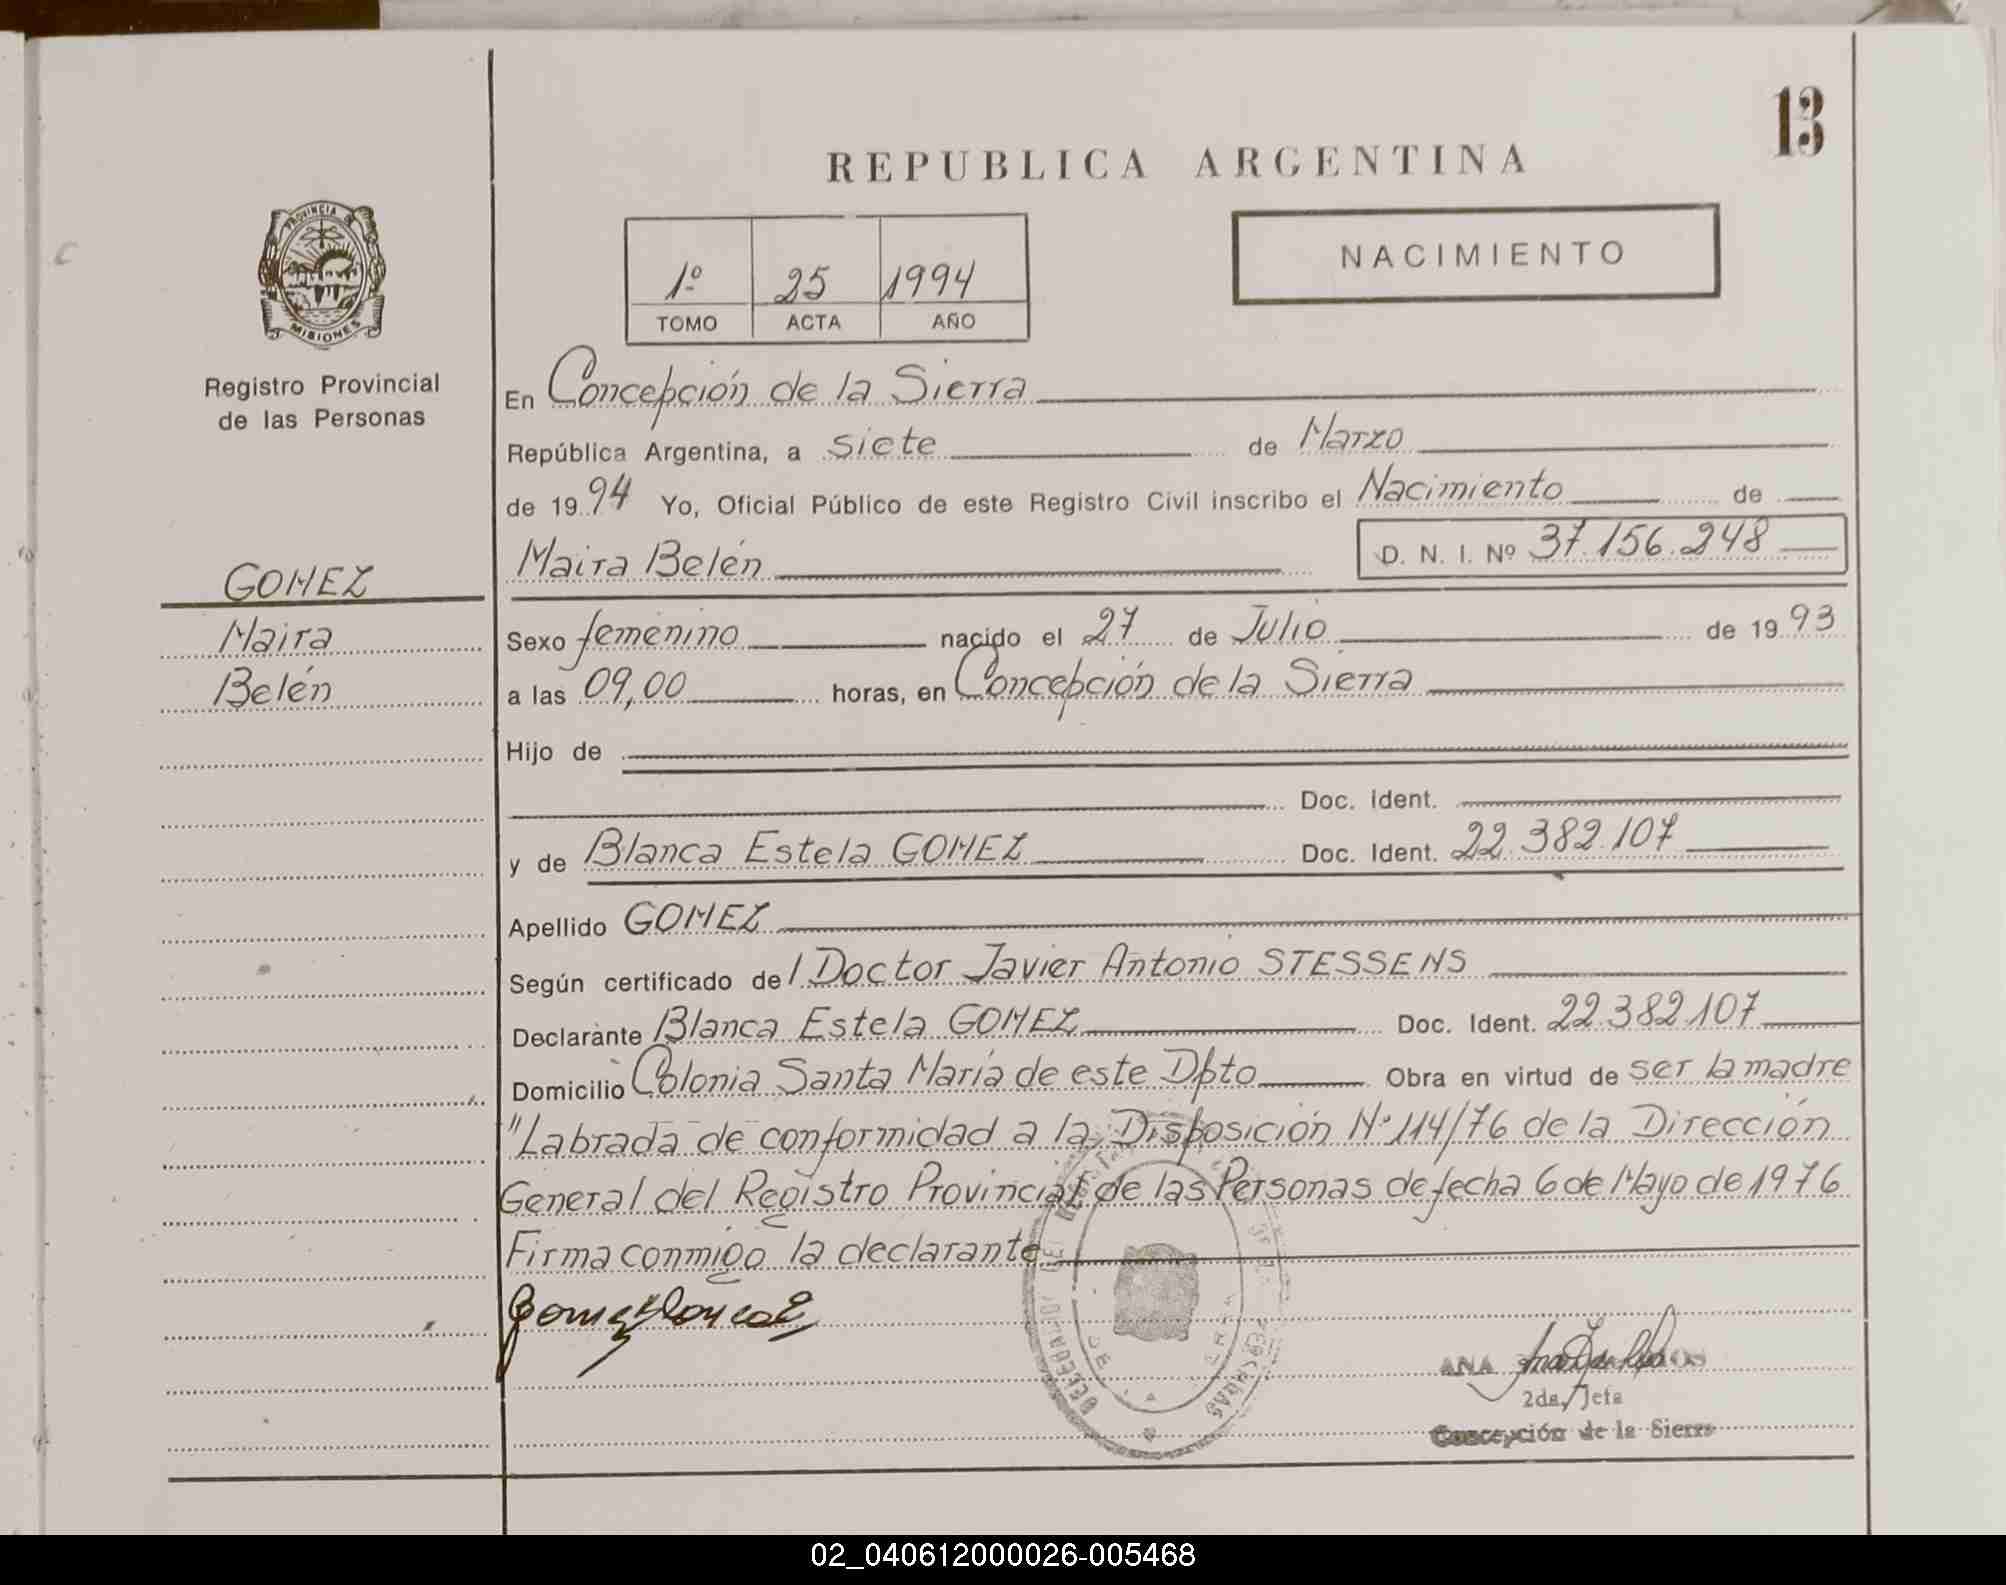 13
REPUBLICA ARGENTINA
PROVINCIA DE
MISIONES
1º 25 1994
TOMO ACTA AÑO
NACIMIENTO
Registro Provincial
de las Personas
En Concepción de la Sierra
República Argentina, a siete de Marzo
de 1994 Yo, Oficial Público de este Registro Civil inscribo el Nacimiento de
Maira Belén D. N. I. Nº 37.156.248
GOMEZ
Maira
Belén
Sexo femenino nacido el 27 de Julio de 1993
a las 09,00 horas, en Concepción de la Sierra
Hijo de
Doc. Ident.
y de Blanca Estela GOMEZ Doc. Ident. 22.382.107
Apellido GOMEZ
Según certificado del Doctor Javier Antonio STESSENS
Declarante Blanca Estela GOMEZ Doc. Ident. 22.382.107
Domicilio Colonia Santa María de este Dpto Obra en virtud de ser la madre
"Labrada de conformidad a la Disposición Nº 114/76 de la Dirección
General del Registro Provincial de las Personas de fecha 6 de Mayo de 1976
Firma conmigo la declarante
Gomez Blanca E
ANA
2da. Jefa
Concepción de la Sierra
02_040612000026-005468